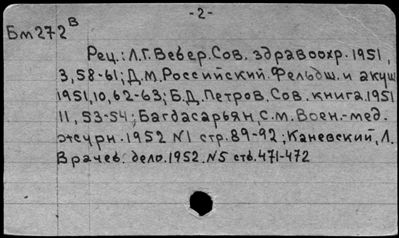 -2-
Бм272В
Рец.: Л.Г. Вебер. Сов. здравоохр. 1951,
3,58-61; Д.М. Российский. Фельдш. и акуш
1951,10,62-63; Б.Д. Петров. Сов. книга.1951
11, 53-54; Багдасарьян, С.М. Воен.-мед.
журн. 1952 N1 стр. 89-92; Каневский, Л.
Врачеб. дело. 1952. N5 стб. 471-472